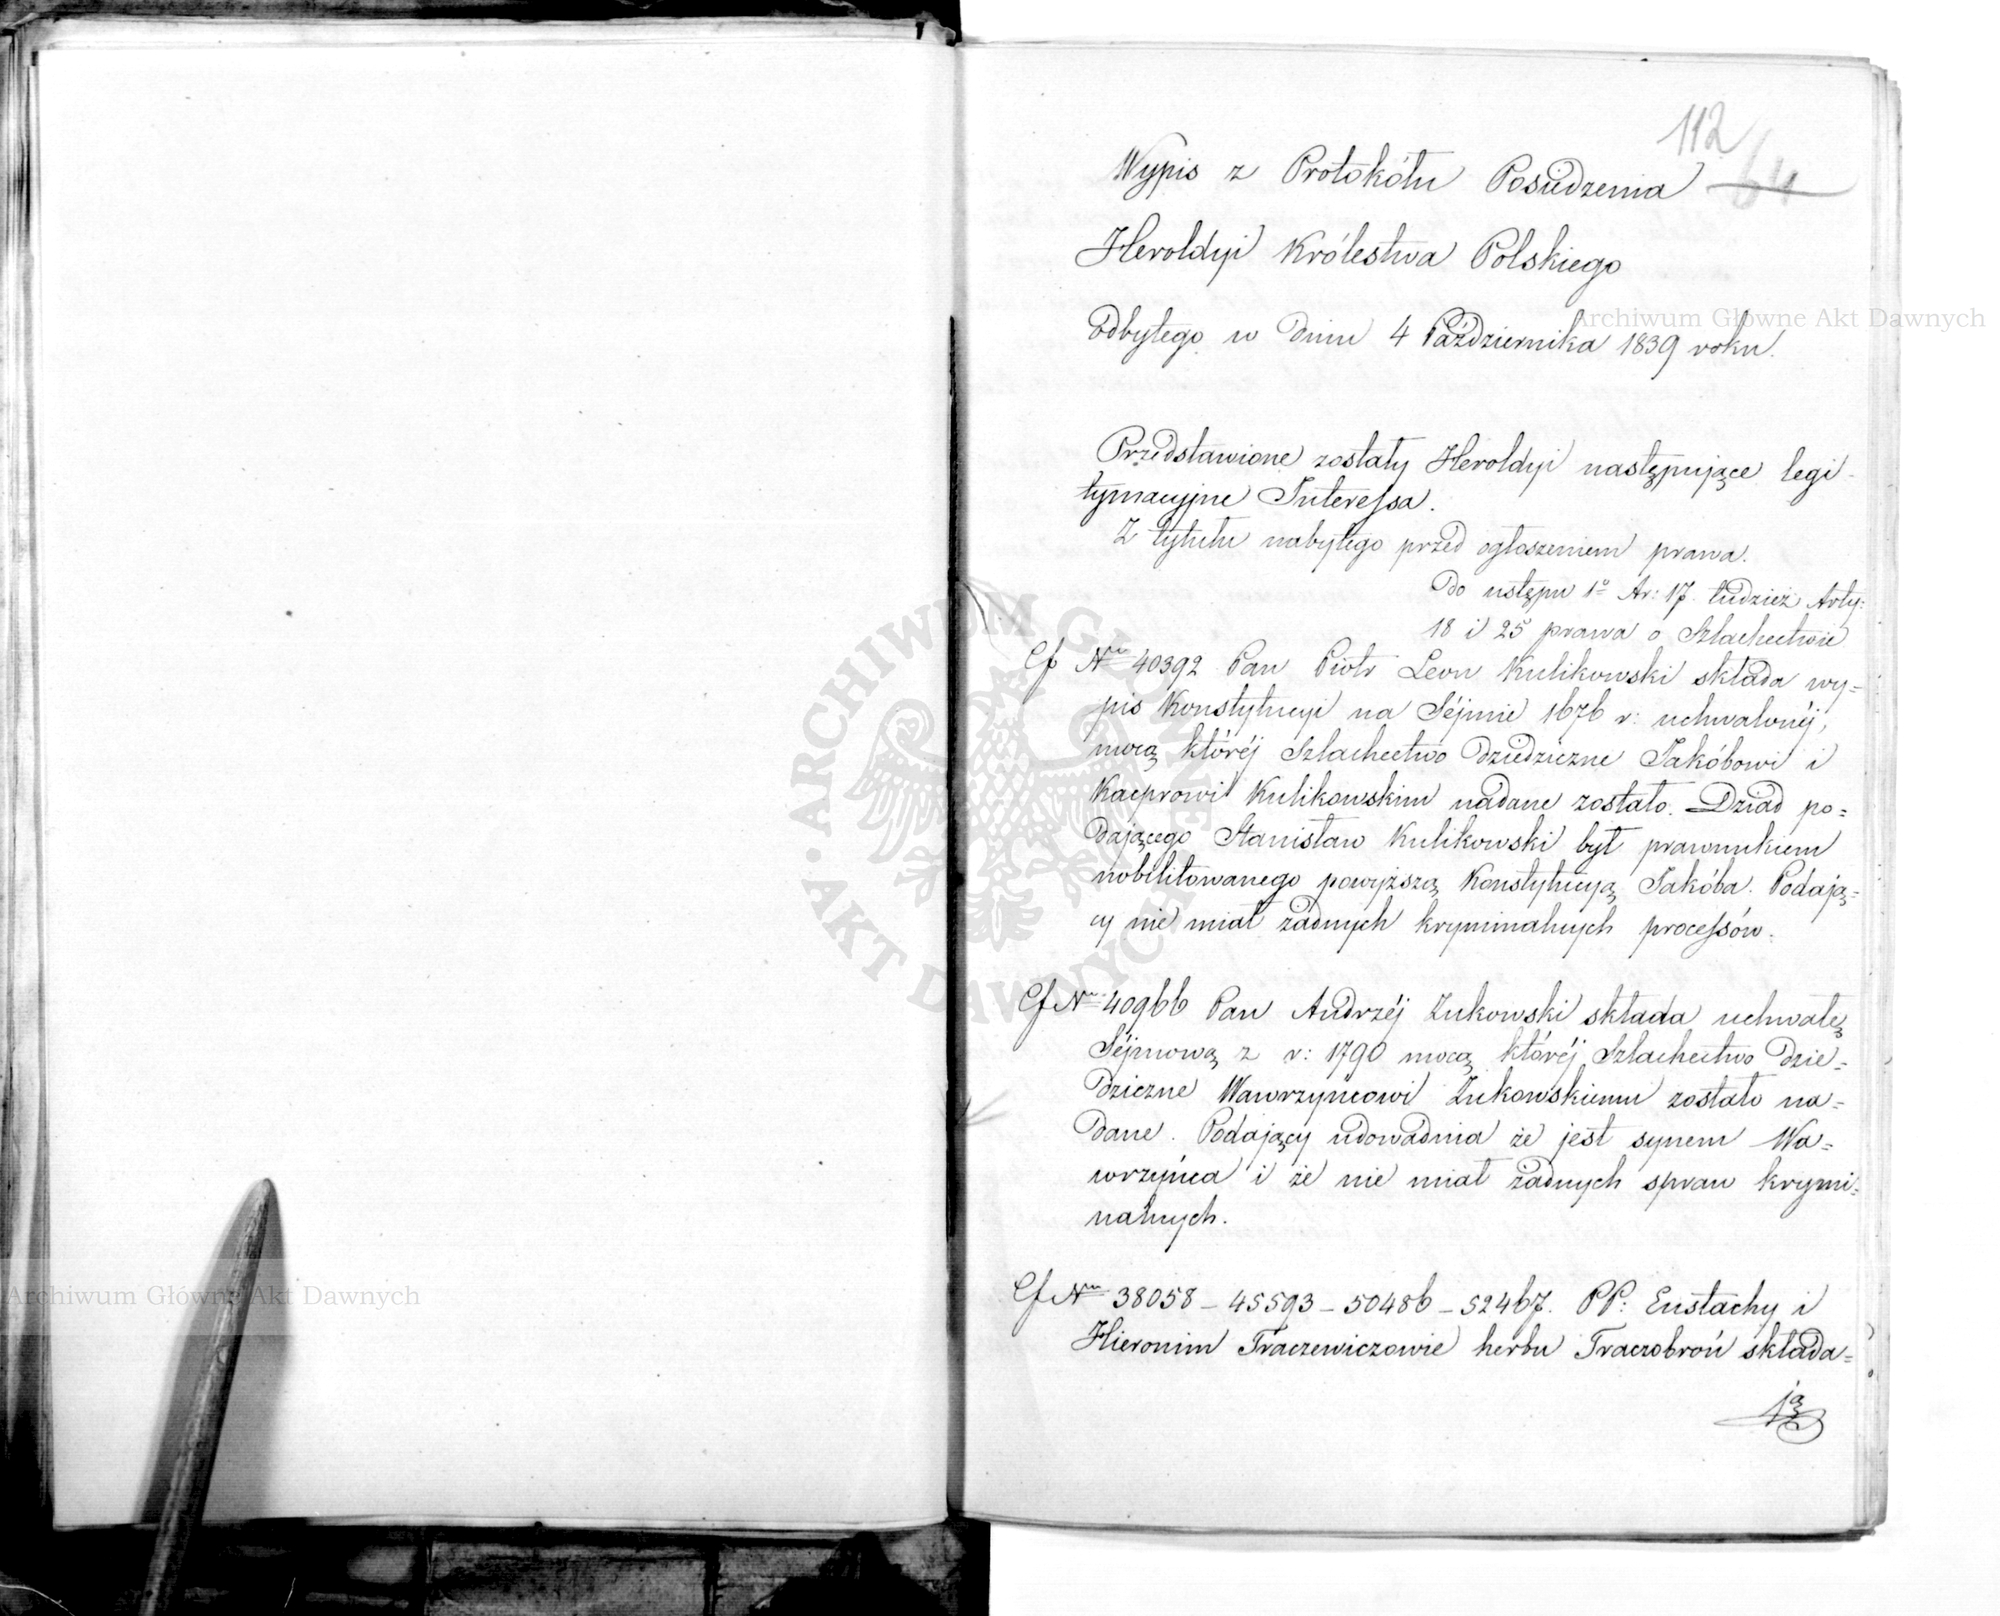 112
64
Wypis z Protokółu Posiedzenia
Heroldyi Królestwa Polskiego
Odbytego w dniu 4 Października 1839 roku.
Archiwum Główne Akt Dawnych
Przedstawione zostały Heroldyi następujące legi-
tymacyjne Interessa.
Z tytułu nabytego przed ogłoszeniem prawa.
Do ustępu 1º Ar: 17. tudzież Arty:
18 i 25 prawa o Szlachectwie
Nru 40392 Pan Piotr Leon Kulikowski składa wy=
pis Konstytucyi na Séjmie 1676 r: uchwalonéj,
mocą któréj Szlachectwo dziedziczne Jakóbowi i
Kacprowi Kulikowskim nadane zostało. Dziad po=
dającego Stanisław Kulikowski był prawnukiem
nobilitowanego powyższą Konstytucyą Jakóba. Podają=
cy nie miał żadnych kryminalnych processów.
Nru 40966 Pan Andrzéj Żukowski składa uchwałę
Séjmową z r: 1790 mocą któréj Szlachectwo dzie=
dziczne Wawrzyńcowi Żukowskiemu zostało na=
dane. Podający udowadnia że jest synem Wa=
wrzyńca i że nie miał żadnych spraw krymi=
nalnych.
Nru 38058 – 45593 – 50486 – 52467. PP: Eustachy i
Hieronim Traczewiczowie herbu Traczobroń składa=
ją
ARCHIWUM GŁÓWNE AKT DAWNYCH
Archiwum Główne Akt Dawnych